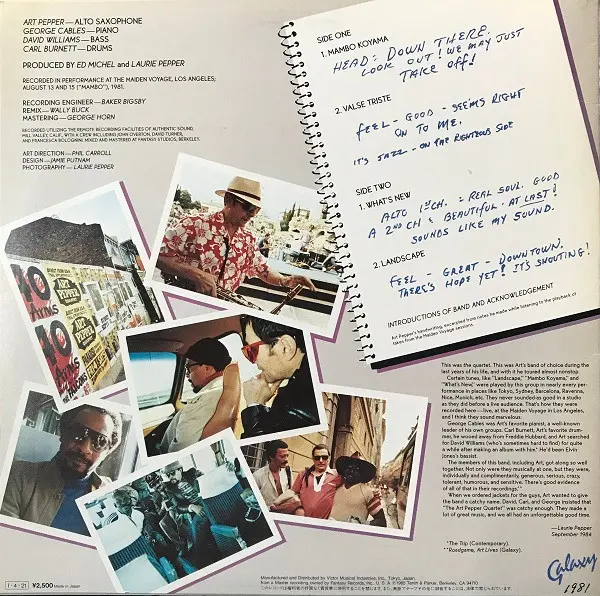 ART PEPPER—ALTO SAXOPHONE
GEORGE CABLES—PIANO
DAVID WILLIAMS—BASS
CARL BURNETT—DRUMS
PRODUCED BY ED MICHEL and LAURIE PEPPER
RECORDED IN PERFORMANCE AT THE MAIDEN VOYAGE, LOS ANGELES;
AUGUST 13 AND 15 ("MAMBO"), 1981.
RECORDING ENGINEER—BAKER BIGSBY
REMIX—WALLY BUCK
MASTERING—GEORGE HORN
RECORDED UTILIZING THE REMOTE RECORDING FACILITIES OF AUTHENTIC SOUND,
MILL VALLEY, CALIF., WITH A CREW INCLUDING JOHN OVERTON, DAVID TURNER,
AND FRANCESCA BOLOGNINI. MIXED AND MASTERED AT FANTASY STUDIOS, BERKELEY.
ART DIRECTION—PHIL CARROLL
DESIGN—JAMIE PUTNAM
PHOTOGRAPHY—LAURIE PEPPER
SIDE ONE
1. MAMBO KOYAMA
HEAD: DOWN THERE.
LOOK OUT! WE MAY JUST
TAKE OFF!
2. VALSE TRISTE
FEEL - GOOD - SEEMS RIGHT
ON TO ME.
IT'S JAZZ - ON THE RIGHTEOUS SIDE
SIDE TWO
1. WHAT'S NEW
ALTO 1ST CH. = REAL SOUL. GOOD
A 2ND CH & BEAUTIFUL. AT LAST!
SOUNDS LIKE MY SOUND.
2. LANDSCAPE
FEEL - GREAT - DOWNTOWN.
THERE'S HOPE YET! IT'S SHOUTING!
INTRODUCTIONS OF BAND AND ACKNOWLEDGEMENT
Art Pepper's handwriting, excerpted from notes he made while listening to the playback of
takes from the Maiden Voyage sessions.
ART
PEPPER
This was the quartet. This was Art's band of choice during the
last years of his life, and with it he toured almost nonstop.
Certain tunes, like "Landscape," "Mambo Koyama," and
"What's New," were played by this group in nearly every per-
formance in places like Tokyo, Sydney, Barcelona, Ravenna,
Nice, Munich, etc. They never sounded as good in a studio
as they did before a live audience. That's how they were
recorded here—live, at the Maiden Voyage in Los Angeles,
and I think they sound marvelous.
George Cables was Art's favorite pianist, a well-known
leader of his own groups. Carl Burnett, Art's favorite drum-
mer, he wooed away from Freddie Hubbard; and Art searched
for David Williams (who's sometimes hard to find) for quite
a while after making an album with him.* He'd been Elvin
Jones's bassist.
The members of this band, including Art, got along so well
together. Not only were they musically at one, but they were,
individually and complimentarily, generous, serious, crazy,
tolerant, humorous, and sensitive. There's good evidence
of all of that in their recordings.**
When we ordered jackets for the guys, Art wanted to give
the band a catchy name. David, Carl, and George insisted that
"The Art Pepper Quartet" was catchy enough. They made a
lot of great music, and we all had an unforgettable good time.
—Laurie Pepper
September 1984
*The Trip (Contemporary).
**Roadgame, Art Lives (Galaxy).
Galaxy
1981
I·4·21 ¥2,500 Made in Japan
Manufactured and Distributed by Victor Musical Industries, Inc., Tokyo, Japan.
from a Master recording owned by Fantasy Records, Inc., U. S. A. © 1985 Tenth & Parker, Berkeley, CA 94710